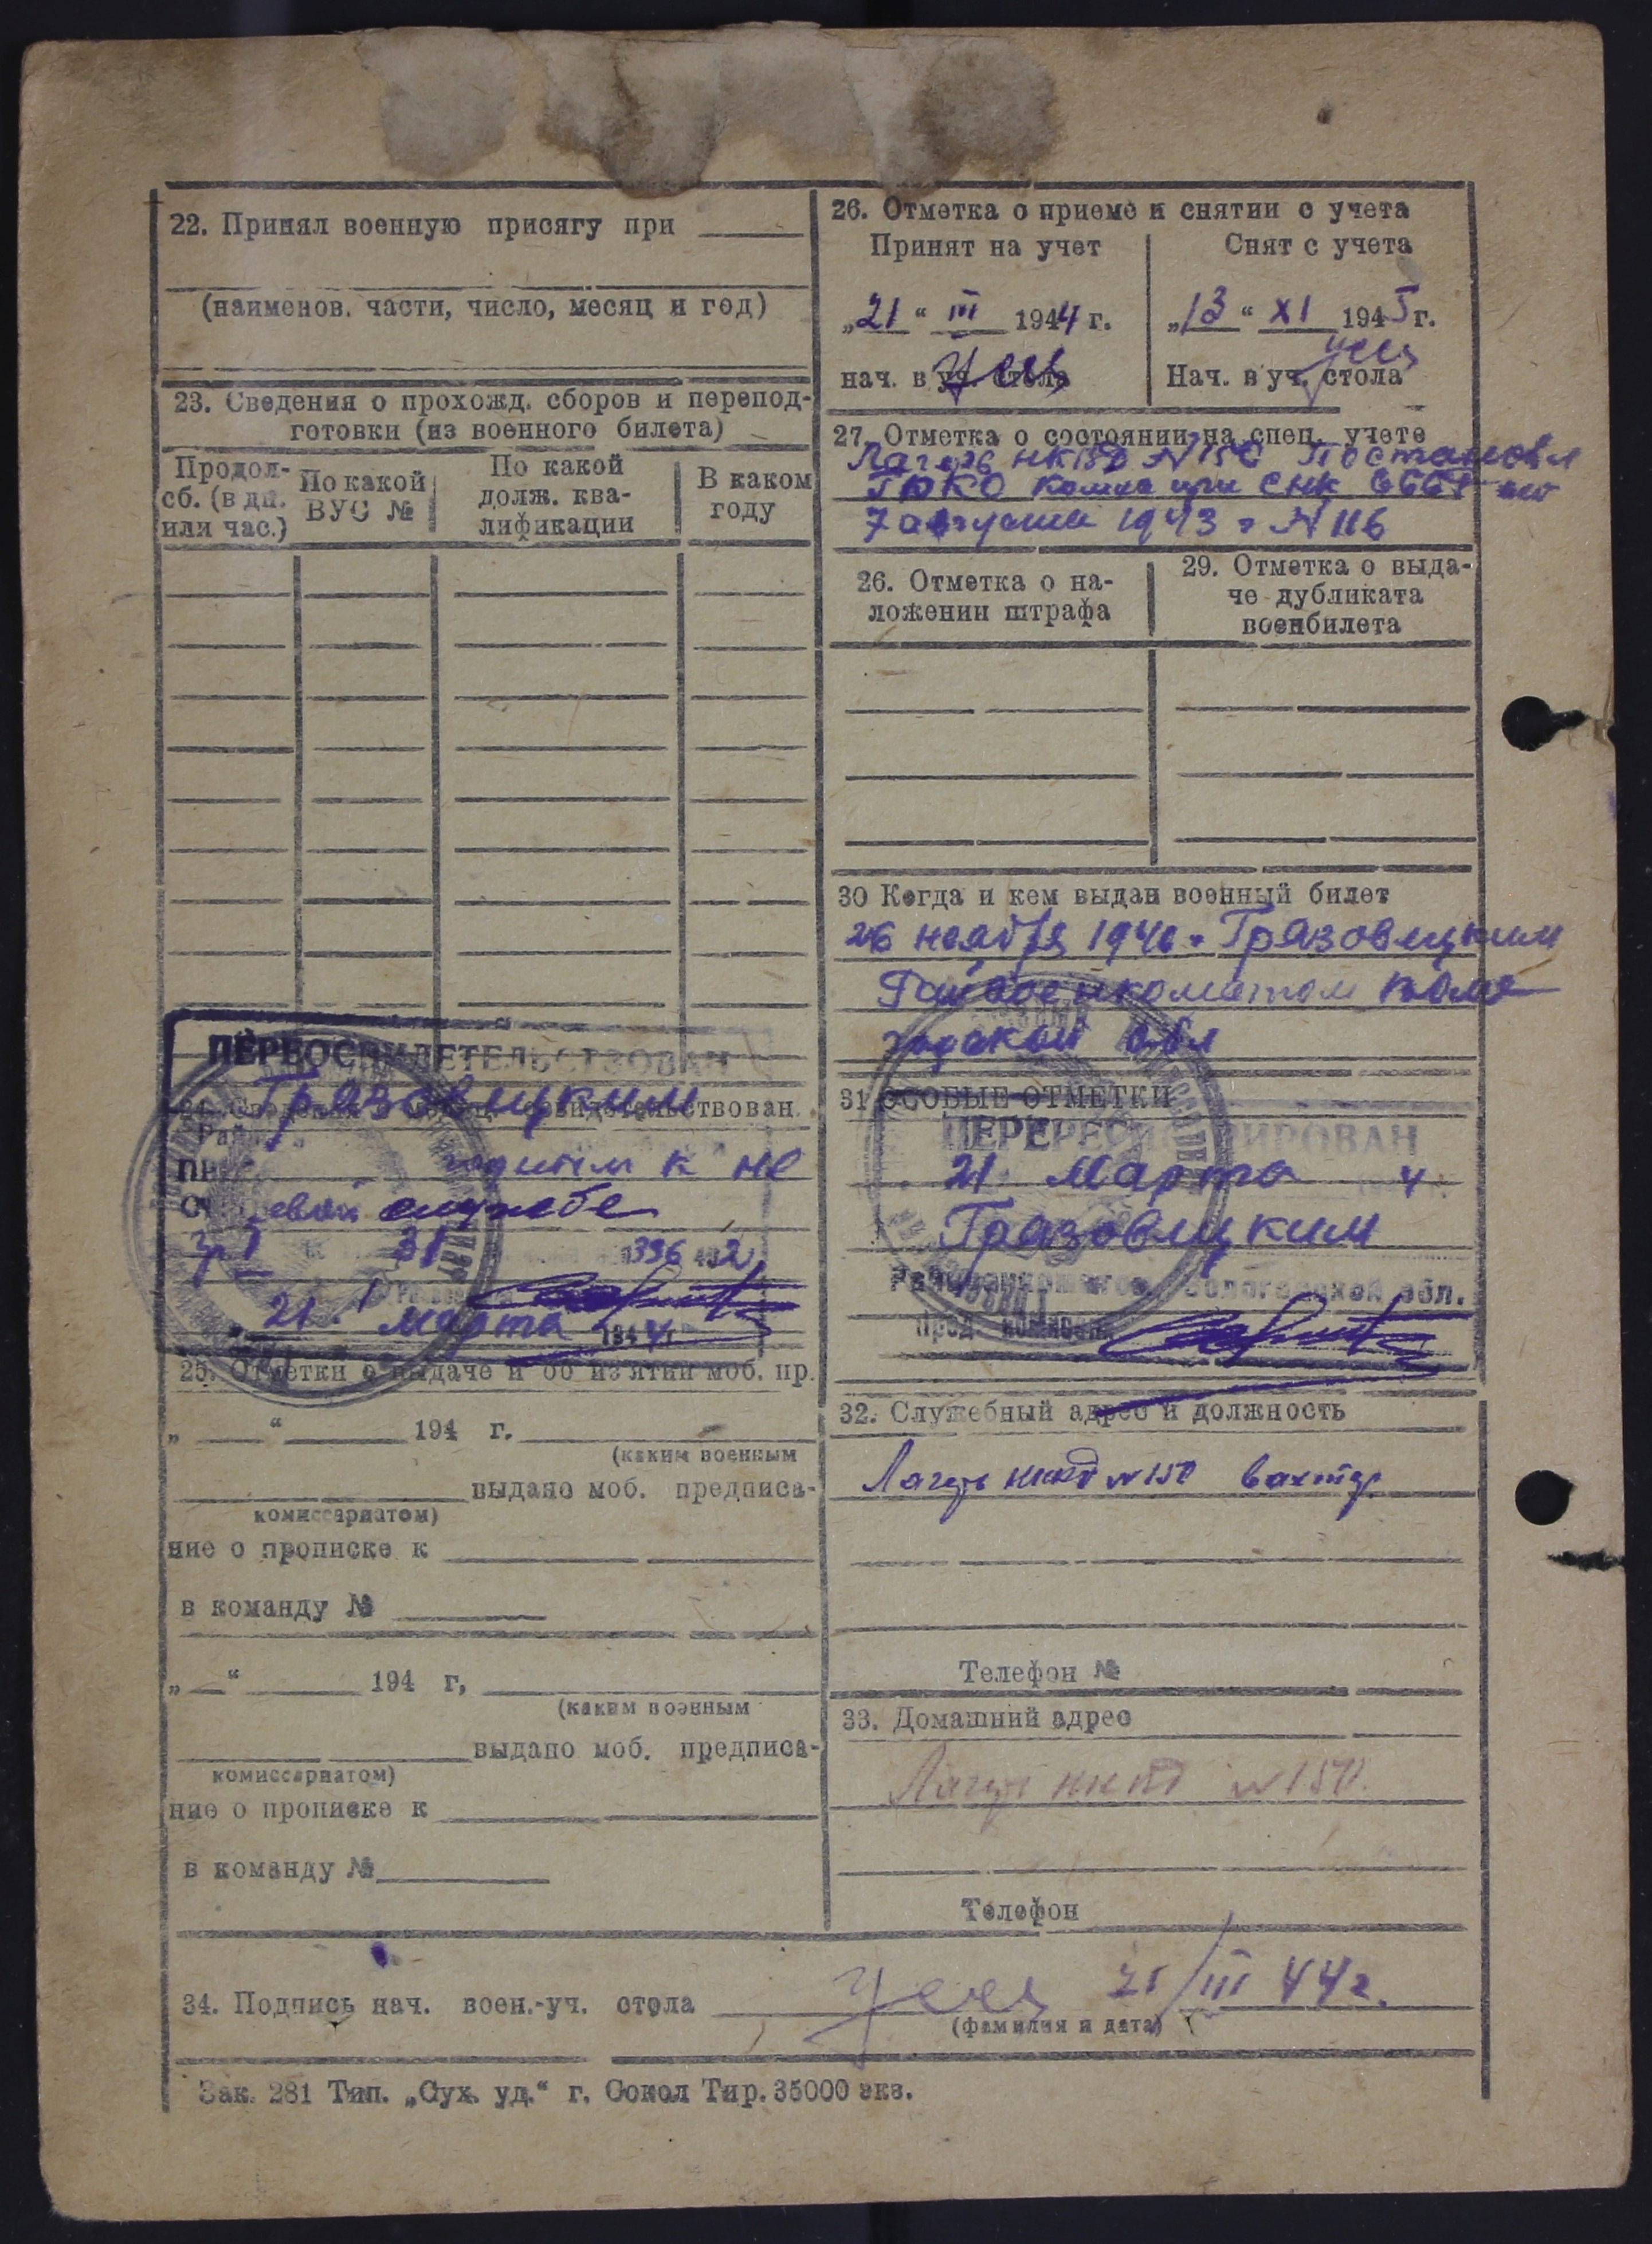 22. Принял военную присягу при
(наименов. части, число, месяц и год)
23. Сведения о прохожд. сборов и перепод-
готовки (из военного билета)
Продол-
сб. (в дн.
или час.)
По какой
ВУС №
По какой
долж. ква-
лификации
В каком
году
ПЕРЕОСВИДЕТЕЛЬСТВОВАН
Грязовецким
годным к не
строевой службе
336 1942
21 Марта 1944 г
25. Отметки о выдаче и об из'ятии моб. пр.
„ “ 194 г.
(каким военным
выдано моб. предписа-
комиссариатом)
ние о прописке к
в команду №
„ “ 194 г,
(каким военным
выдано моб. предписа-
комиссариатом)
ние о прописке к
в команду №
26. Отметка о приеме и снятии с учета
Принят на учет
„21“ III 1944 г.
нач. в уч. стола
Снят с учета
„13“ XI 1945 г.
Нач. в уч. стола
27. Отметка о состоянии на спец. учете
Лагерь НКВД №150 Постановл
7 августа 1943 г № 116
26. Отметка о на-
ложении штрафа
29. Отметка о выда-
че дубликата
военбилета
30 Когда и кем выдан военный билет
26 ноября 1940 г. Грязовецким
Райвоенкоматом Воло
годской обл
31 ОСОБЫЕ ОТМЕТКИ
ПЕРЕРЕГИСТРИРОВАН
21 Марта 4
Грязовецким
Райвоенкоматом Вологодской обл.
Пред. комиссии
32. Служебный адрес и должность
Лагерь НКВД №150 вахтер
Телефон №
33. Домашний адрес
Лагерь НКВД №150.
Телефон
34. Подпись нач. воен.-уч. стола 21/III 44г.
(фамилия и дата)
Зак. 281 Тип. „Сух. уд.“ г. Сокол Тир. 35000 экз.